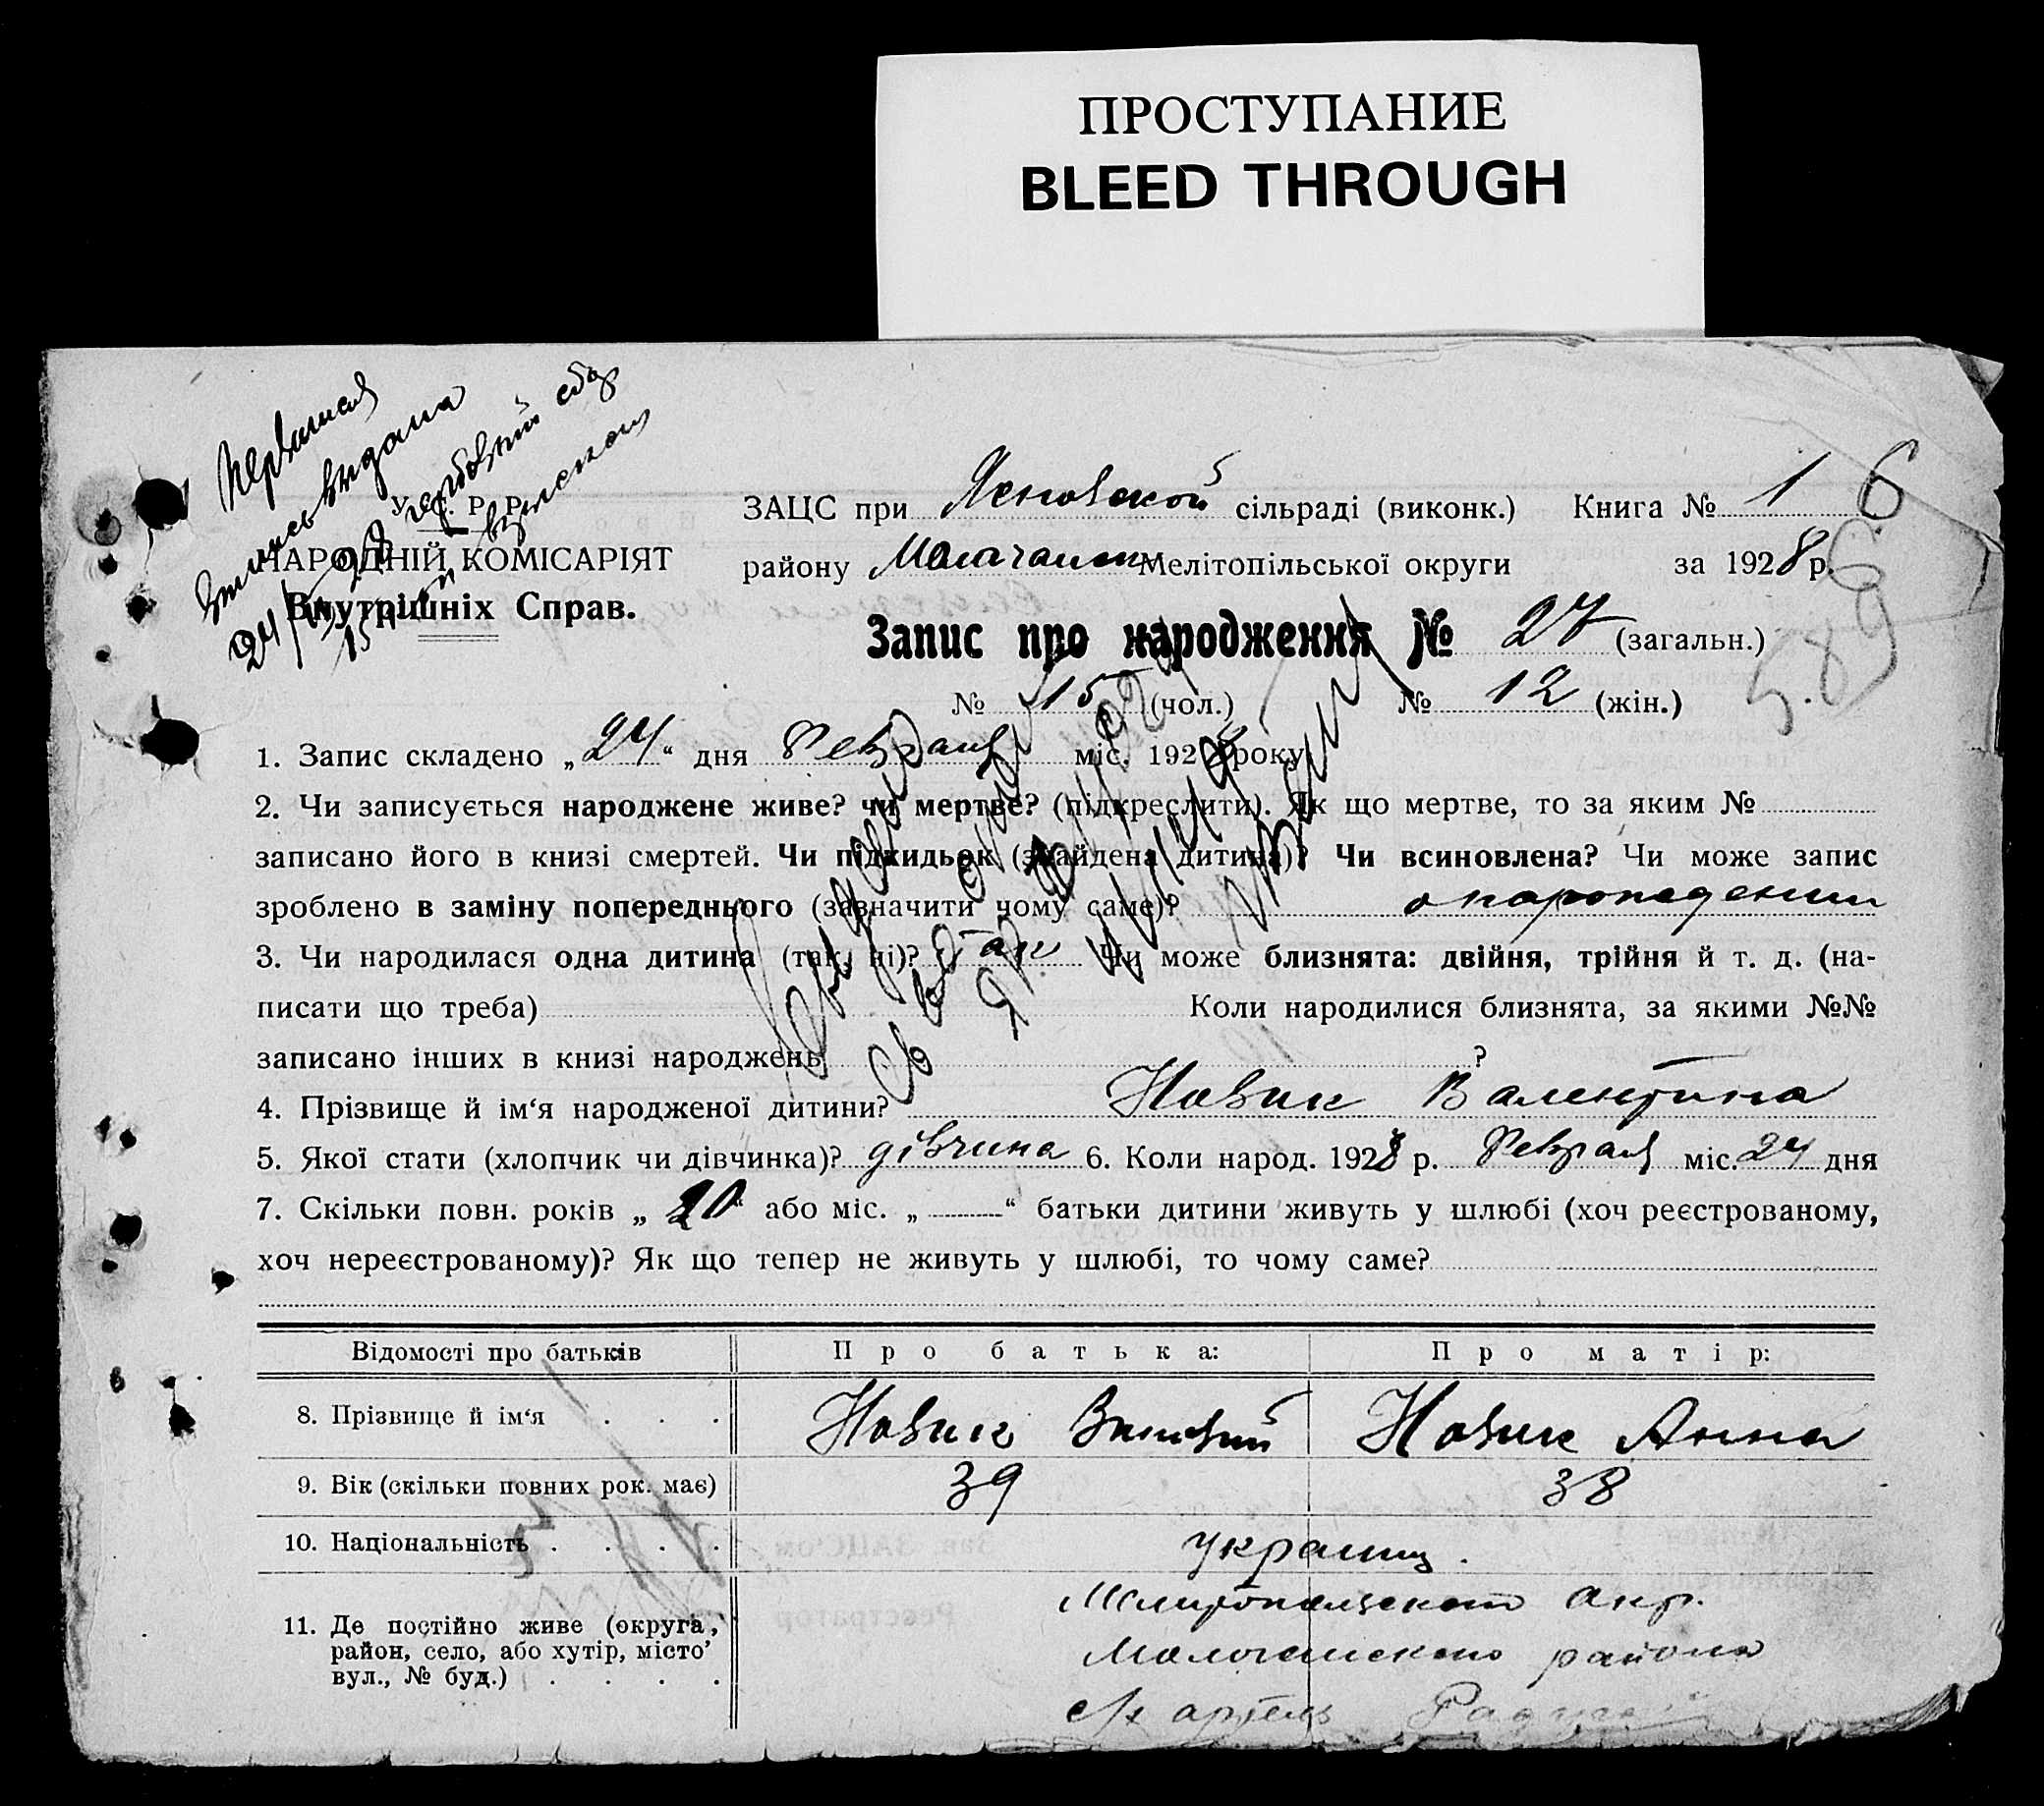 ПРОСТУПАНИЕ
BLEED THROUGH
запись видана
У. С. Р. Р.
НАРОДНІЙ КОМІСАРІЯТ
Внутрішніх Справ.
ЗАЦС при Ясновской сільраді (виконк.) Книга № 1 6
району Молочанск Мелітопільської округи за 1928 р.
Запис про народження № 27 (загальн.)
№ 15 (чол.) № 12 (жін.)
589
1. Запис складено „24“ дня Февраля міс. 1928 року
2. Чи записується народжене живе? чи мертве? (підкреслити). Як що мертве, то за яким №
записано його в книзі смертей. Чи підкидьок (знайдена дитина)? Чи всиновлена? Чи може запис
зроблено в заміну попереднього (зазначити чому саме)? о нарождении
3. Чи народилася одна дитина (так, ні)? так Чи може близнята: двійня, трійня й т. д. (на-
писати що треба) Коли народилися близнята, за якими №№
записано інших в книзі народжень ?
4. Прізвище й ім‘я народженої дитини? Новик Валентина
5. Якої стати (хлопчик чи дівчинка)? дівчина 6. Коли народ. 1928 р. Февраля міс. 24 дня
7. Скільки повн. років „20“ або міс. „ “ батьки дитини живуть у шлюбі (хоч реєстрованому,
хоч нереєстрованому)? Як що тепер не живуть у шлюбі, то чому саме?
Відомості про батьків Про батька: Про матір:
8. Прізвище й ім‘я . . . Новик Новик Анна
9. Вік (скільки повних рок. має) 39 38
10. Національність . . . . украинц.
11. Де постійно живе (округа, Мелитопольской окр.
район, село, або хутір, місто Молочанского района
вул., № буд.) . . . . с/х артель